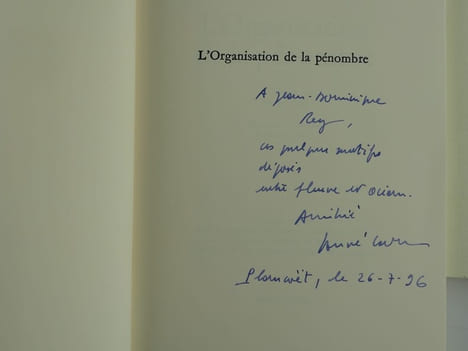 L'Organisation de la pénombre
A Jean-Dominique
Rey,
ces quelques motifs
déposés
entre fleuve et océan.
Amitié
Hervé
le 26-7-96